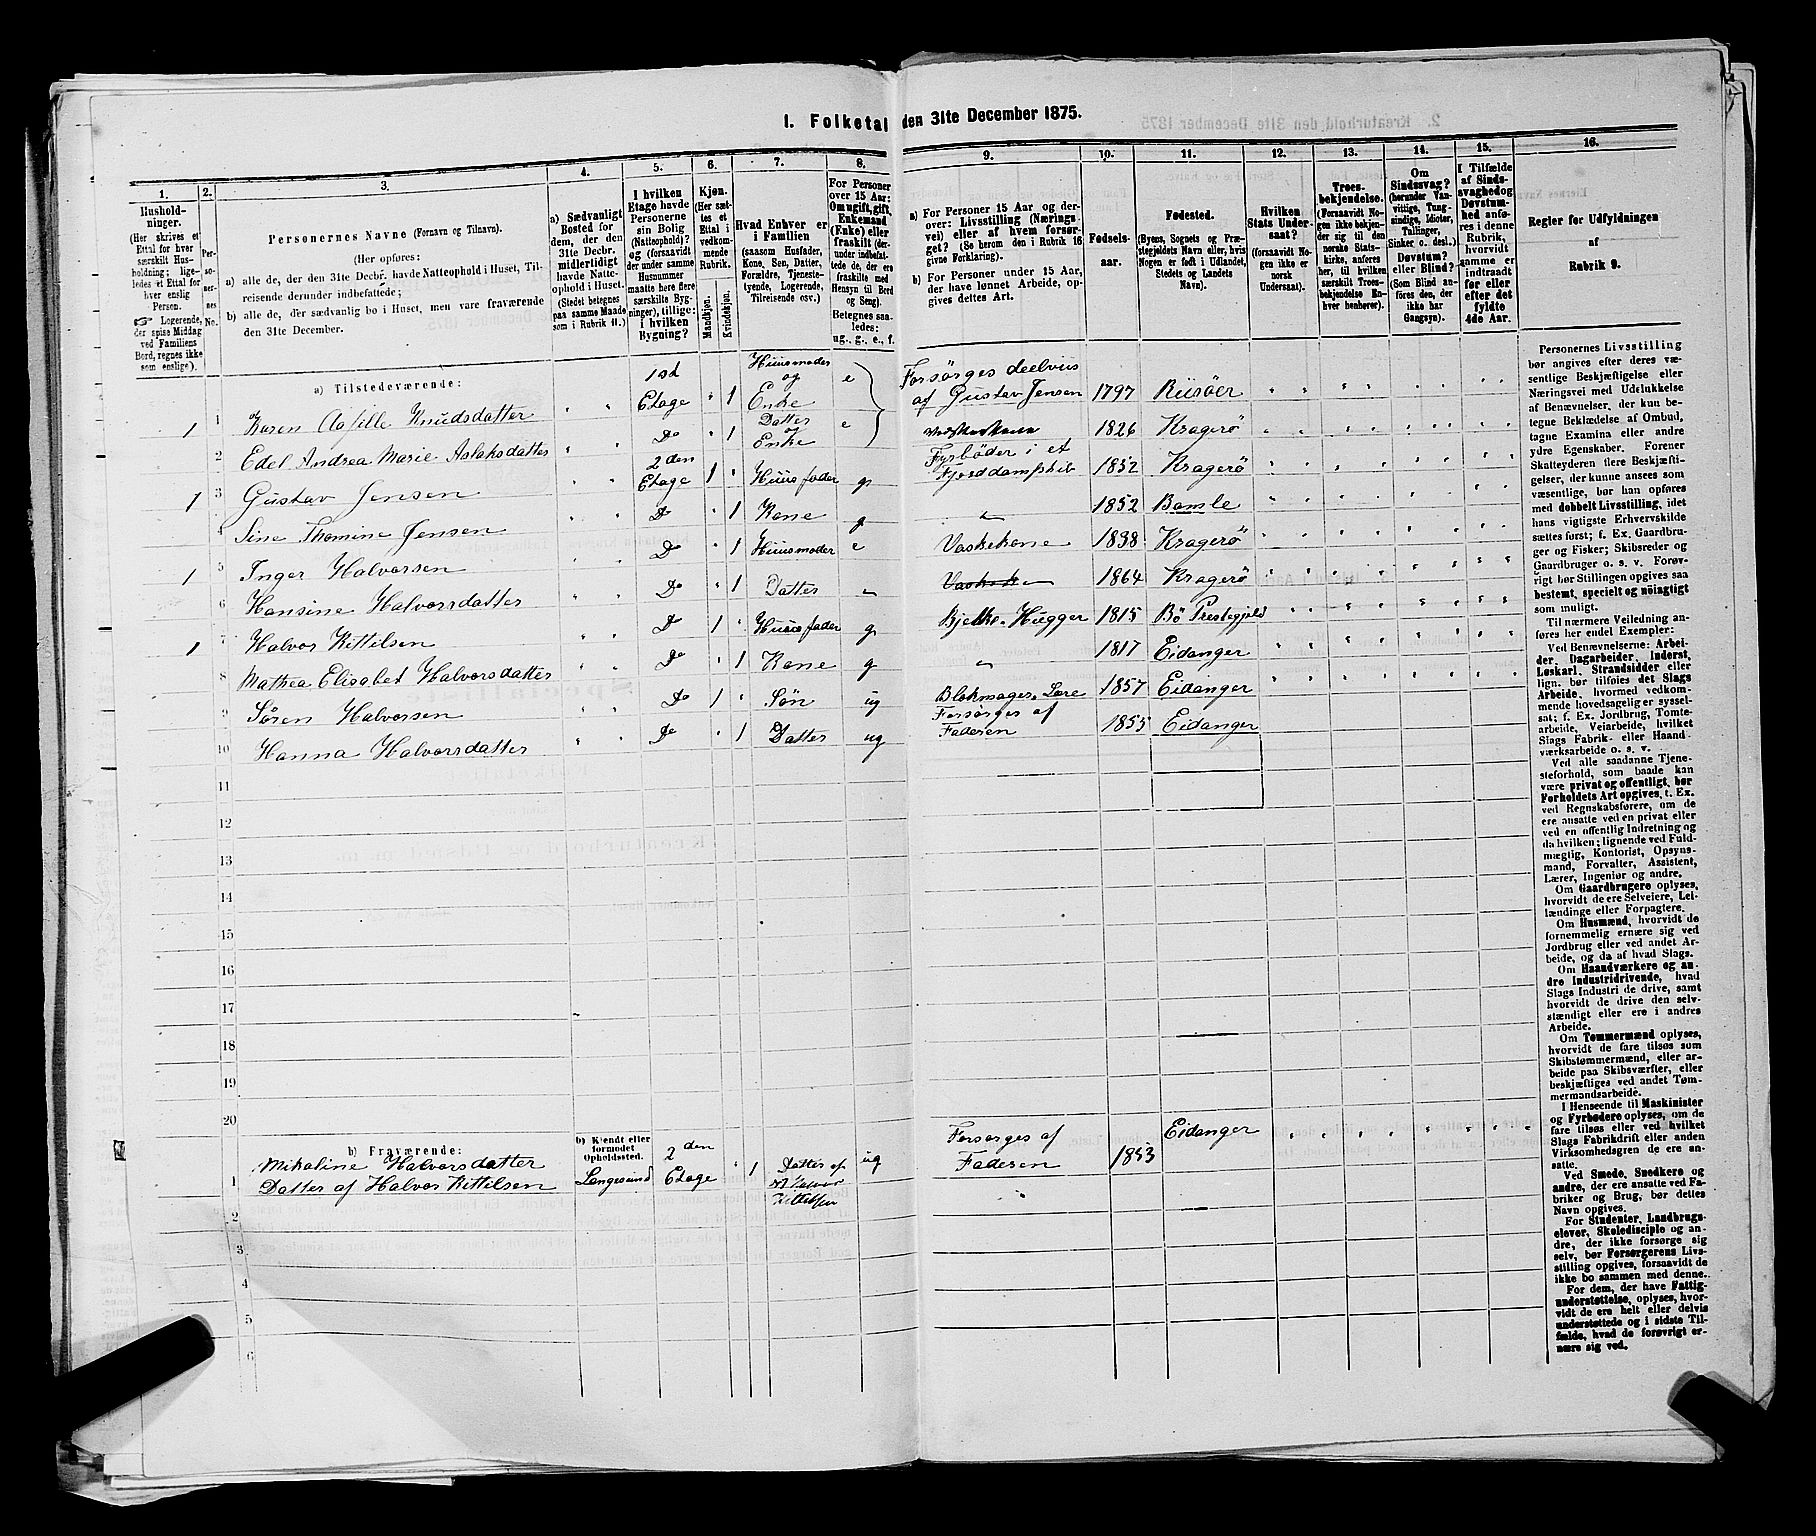 1. Folketal den 31te December 1875.
1.
2.
3.
4.
5.
6.
7.
8.
9.
10.
11.
12.
13.
14.
15.
16.
Hushold-
ninger.
(Her skrives et
Ettal for hver
særskilt Hus-
holdning; lige-
ledes et Ettal for
hver enslig
Person.
☞ Logerende,
der spise Middag
ved Familiens
Bord, regnes ikke
som enslige).
Per-
so-
ner-
nes
No.
Personernes Navne (Fornavn og Tilnavn).
(Her opføres:
a) alle de, der den 31te Decbr. havde Natteophold i Huset, Til-
reisende derunder indbefattede;
b) alle de, der sædvanlig bo i Huset, men vare fraværende
den 31te December.
a) Sædvanligt
Bosted for
dem, der den
31te Decbr.
midlertidigt
havde Natte-
ophold i Huset.
(Stedet betegnes
paa samme Maade
som i Rubrik 11.)
I hvilken
Etage havde
Personerne
sin Bolig
(Natteophold)?
og (forsaavidt
der under samme
Husnummer
maatte høre flere
særskilte Byg-
ninger), tillige:
i hvilken
Bygning?
Kjøn.
(Her sæt-
tes et
Ettal i
vedkom-
mende
Rubrik.
Mandkjøn.
Kvindekjøn.
Hvad Enhver er
i Familien
(saasom Husfader,
Kone, Søn, Datter,
Forældre, Tjeneste-
tyende, Logerende,
Tilreisende osv.)
For Personer
over 15 Aar:
Om ugift, gift,
Enkemand
(Enke) eller
fraskilt (der-
under indbefat-
tede de, der ere
fraskilte med
Hensyn til Bord
og Seng).
Betegnes saa-
ledes:
ug., g., e., f.
a) For Personer 15 Aar og der-
over: Livsstilling (Nærings-
vei) eller af hvem forsør-
get? (Se herom den i Rubrik 16
givne Forklaring).
b) For Personer under 15 Aar,
der have lønnet Arbeide, op-
gives dettes Art.
Fødsels-
aar.
Fødested.
(Byens, Sognets og Præ-
stegjeldets Navn eller, hvis
Nogen er født i Udlandet,
Stedets og Landets
Navn).
Hvilken
Stats Under-
saat?
(forsaavidt No-
gen ikke er
norsk
Undersaat).
Troes-
bekjendelse.
(Forsaavidt No-
gen ikke bekjen-
der sig til den
norske Stats-
kirke, anføres
her, til hvilken
særskilt Troes-
bekjendelse En-
hver henhører).
Om
Sindssvag?
(herunder Van-
vittige, Tung-
sindige, Idioter,
Tullinger,
Sinker o. desl.)
Døvstum?
eller Blind?
(Som Blind an-
føres den, der
ikke har
Gangsyn).
I Tilfælde
af Sinds-
svaghed og
Døvstum-
hed anfø-
res i denne
Rubrik,
hvorvidt
samme er
indtraadt
før eller
efter det
fyldte
4de Aar.
Regler for Udfyldningen
af
Rubrik 9.
a) Tilstedeværende:
1 1 Karen Knudsdatter " " 1st Etage " 1 Huusmoder og Enke e Forsørges deelviis af Gustav Jensen 1797 Riisöer " " " " "
2 Edel Andrea Marie Aslaksdatter " " Do " 1 Datter og Enke e 1826 Kragerö " " " " "
1 3 Gustav Jensen " " 2den Etage 1 " Huusfader g Fyrböder i et Fjorddampskib 1852 Kragerö " " " " "
4 Sine Thomine Jensen " " Do " 1 Kone g " 1852 Bamle " " " " "
1 5 Inger Halvorsen " " Do " 1 Huusmoder e Vaskekone 1838 Kragerö " " " " "
6 Hansine Halvorsdatter " " Do " 1 Datter " " 1864 Kragerö " " " " "
1 7 Halvor Kittilsen " " Do 1 " Huusfader g Bjelke-Hugger 1815 Bö Prestegjeld " " " " "
8 Mathea Elisabet Halvorsdatter " " Do " 1 Kone g " 1817 Eidanger " " " " "
9 Sören Halvorsen " " Do 1 " Sön ug Blokmager Lære 1857 Eidanger " " " " "
10 Hanna Halvorsdatter " " Do " 1 Datter ug Forsörges af Faderen 1855 Eidanger
11
12
13
14
15
16
17
18
19
20
b) Fraværende:
b) Kjendt eller
formodet
Opholdssted.
1 Mikaline Halvorsdatter
Datter af Halvor Kittilsen Langesund 2den Etage " 1 Datter af Halvor Kittilsen ug Forsörges af Faderen 1853 Eidanger " " " " "
2
3
4
5
6
Personernes Livsstilling
bør angives efter deres væ-
sentlige Beskjæftigelse eller
Næringsvei med Udelukkelse
af Benævnelser, der kun be-
tegne Beklædelse af Ombud,
tagne Examina eller andre
ydre Egenskaber. Forener
Skatteyderen flere Beskjæfti-
gelser, der kunne ansees som
væsentlige, bør han opføres
med dobbelt Livsstilling, idet
hans vigtigste Erhvervskilde
sættes først; f. Ex. Gaardbru-
ger og Fisker; Skibsreder og
Gaardbruger o. s. v. Forøv-
rigt bør Stillingen opgives saa
bestemt, specielt og nöiagtigt
som muligt.
Til nærmere Veiledning an-
føres her endel Exempler:
Ved Benævnelserne: Arbei-
der, Dagarbeider, Inderst,
Løskarl, Strandsidder eller
lign. bør tilføies det Slags
Arbeide, hvormed vedkom-
mende hovedsagelig er syssel-
sat; f. Ex. Jordbrug, Tomte-
arbeide, Veiarbeide, hvilket
Slags Fabrik- eller Haand-
værksarbeide o. s. v.
Ved alle saadanne Tjene-
steforhold, som baade kan
være privat og offentligt, bør
Forholdets Art opgives, t. Ex.
ved Regnskabsførere, om de
ere ansatte ved en privat eller
ved en offentlig Indretning og
da hvilken; lignende ved Fuld-
mægtig, Kontorist, Opsyns-
mand, Forvalter, Assistent,
Lærer, Ingeniør og andre.
Om Gaardbrugere oplyses,
hvorvidt de ere Selveiere, Lei-
lændinge eller Forpagtere.
Om Husmænd, hvorvidt de
fornemmelig ernære sig ved
Jordbrug eller ved andet Ar-
beide, og da af hvad Slags.
Om Haandværkere og an-
dre Industridrivende, hvad
Slags Industri de drive, samt
hvorvidt de drive den selv-
stændigt eller ere i andres
Arbeide.
Om Tømmermænd oplyses,
hvorvidt de fare tilsøs som
Skibstømmermænd, eller ar-
beide paa Skibsværfter, eller
beskjæftiges ved andet Tøm-
mermandsarbeide.
I Henseende til Maskinister
og Fyrbødere oplyses, om de
fare tilsøs eller ved hvilket
Slags Fabrikdrift eller anden
Virksomhedsgren de ere an-
satte.
Ved Smede, Snedkere og
andre, der ere ansatte ved Fa-
briker og Brug, bør dettes
Navn opgives.
For Studenter, Landbrugs-
elever, Skoledisciple og an-
dre, der ikke forsørge sig
selv, bør Forsørgerens Livs-
stilling opgives, forsaavidt de
ikke bo sammen med denne.
For dem, der have Fattig-
understøttelse, oplyses, hvor-
vidt de ere helt eller delvis
understøttede og i sidste Til-
fælde, hvad de forøvrigt er-
nære sig ved.